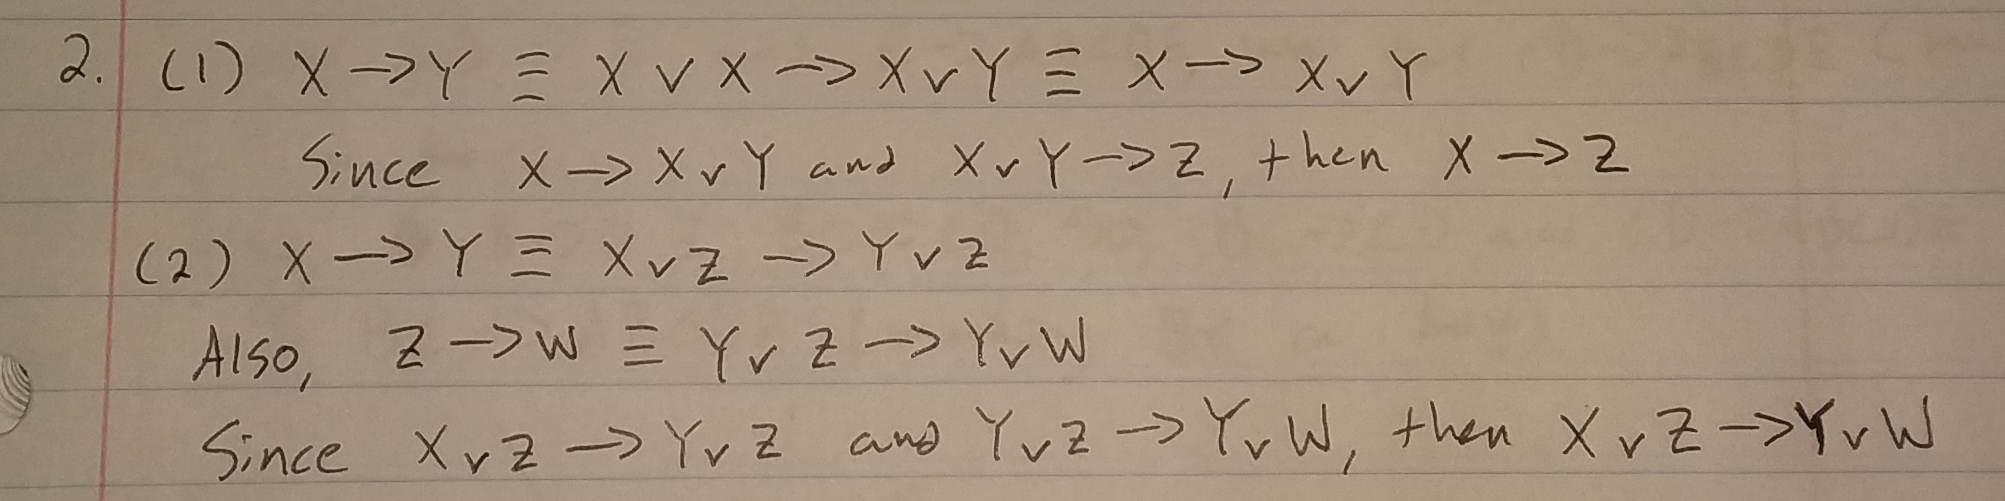 2. (1) X → Y ≡ X ∨ X → X ∨ Y ≡ X → X ∨ Y
Since X → X ∨ Y and X ∨ Y → Z, then X → Z
(2) X → Y ≡ X ∨ Z → Y ∨ Z
Also, Z → W ≡ Y ∨ Z → Y ∨ W
Since X ∨ Z → Y ∨ Z and Y ∨ Z → Y ∨ W, then X ∨ Z → Y ∨ W